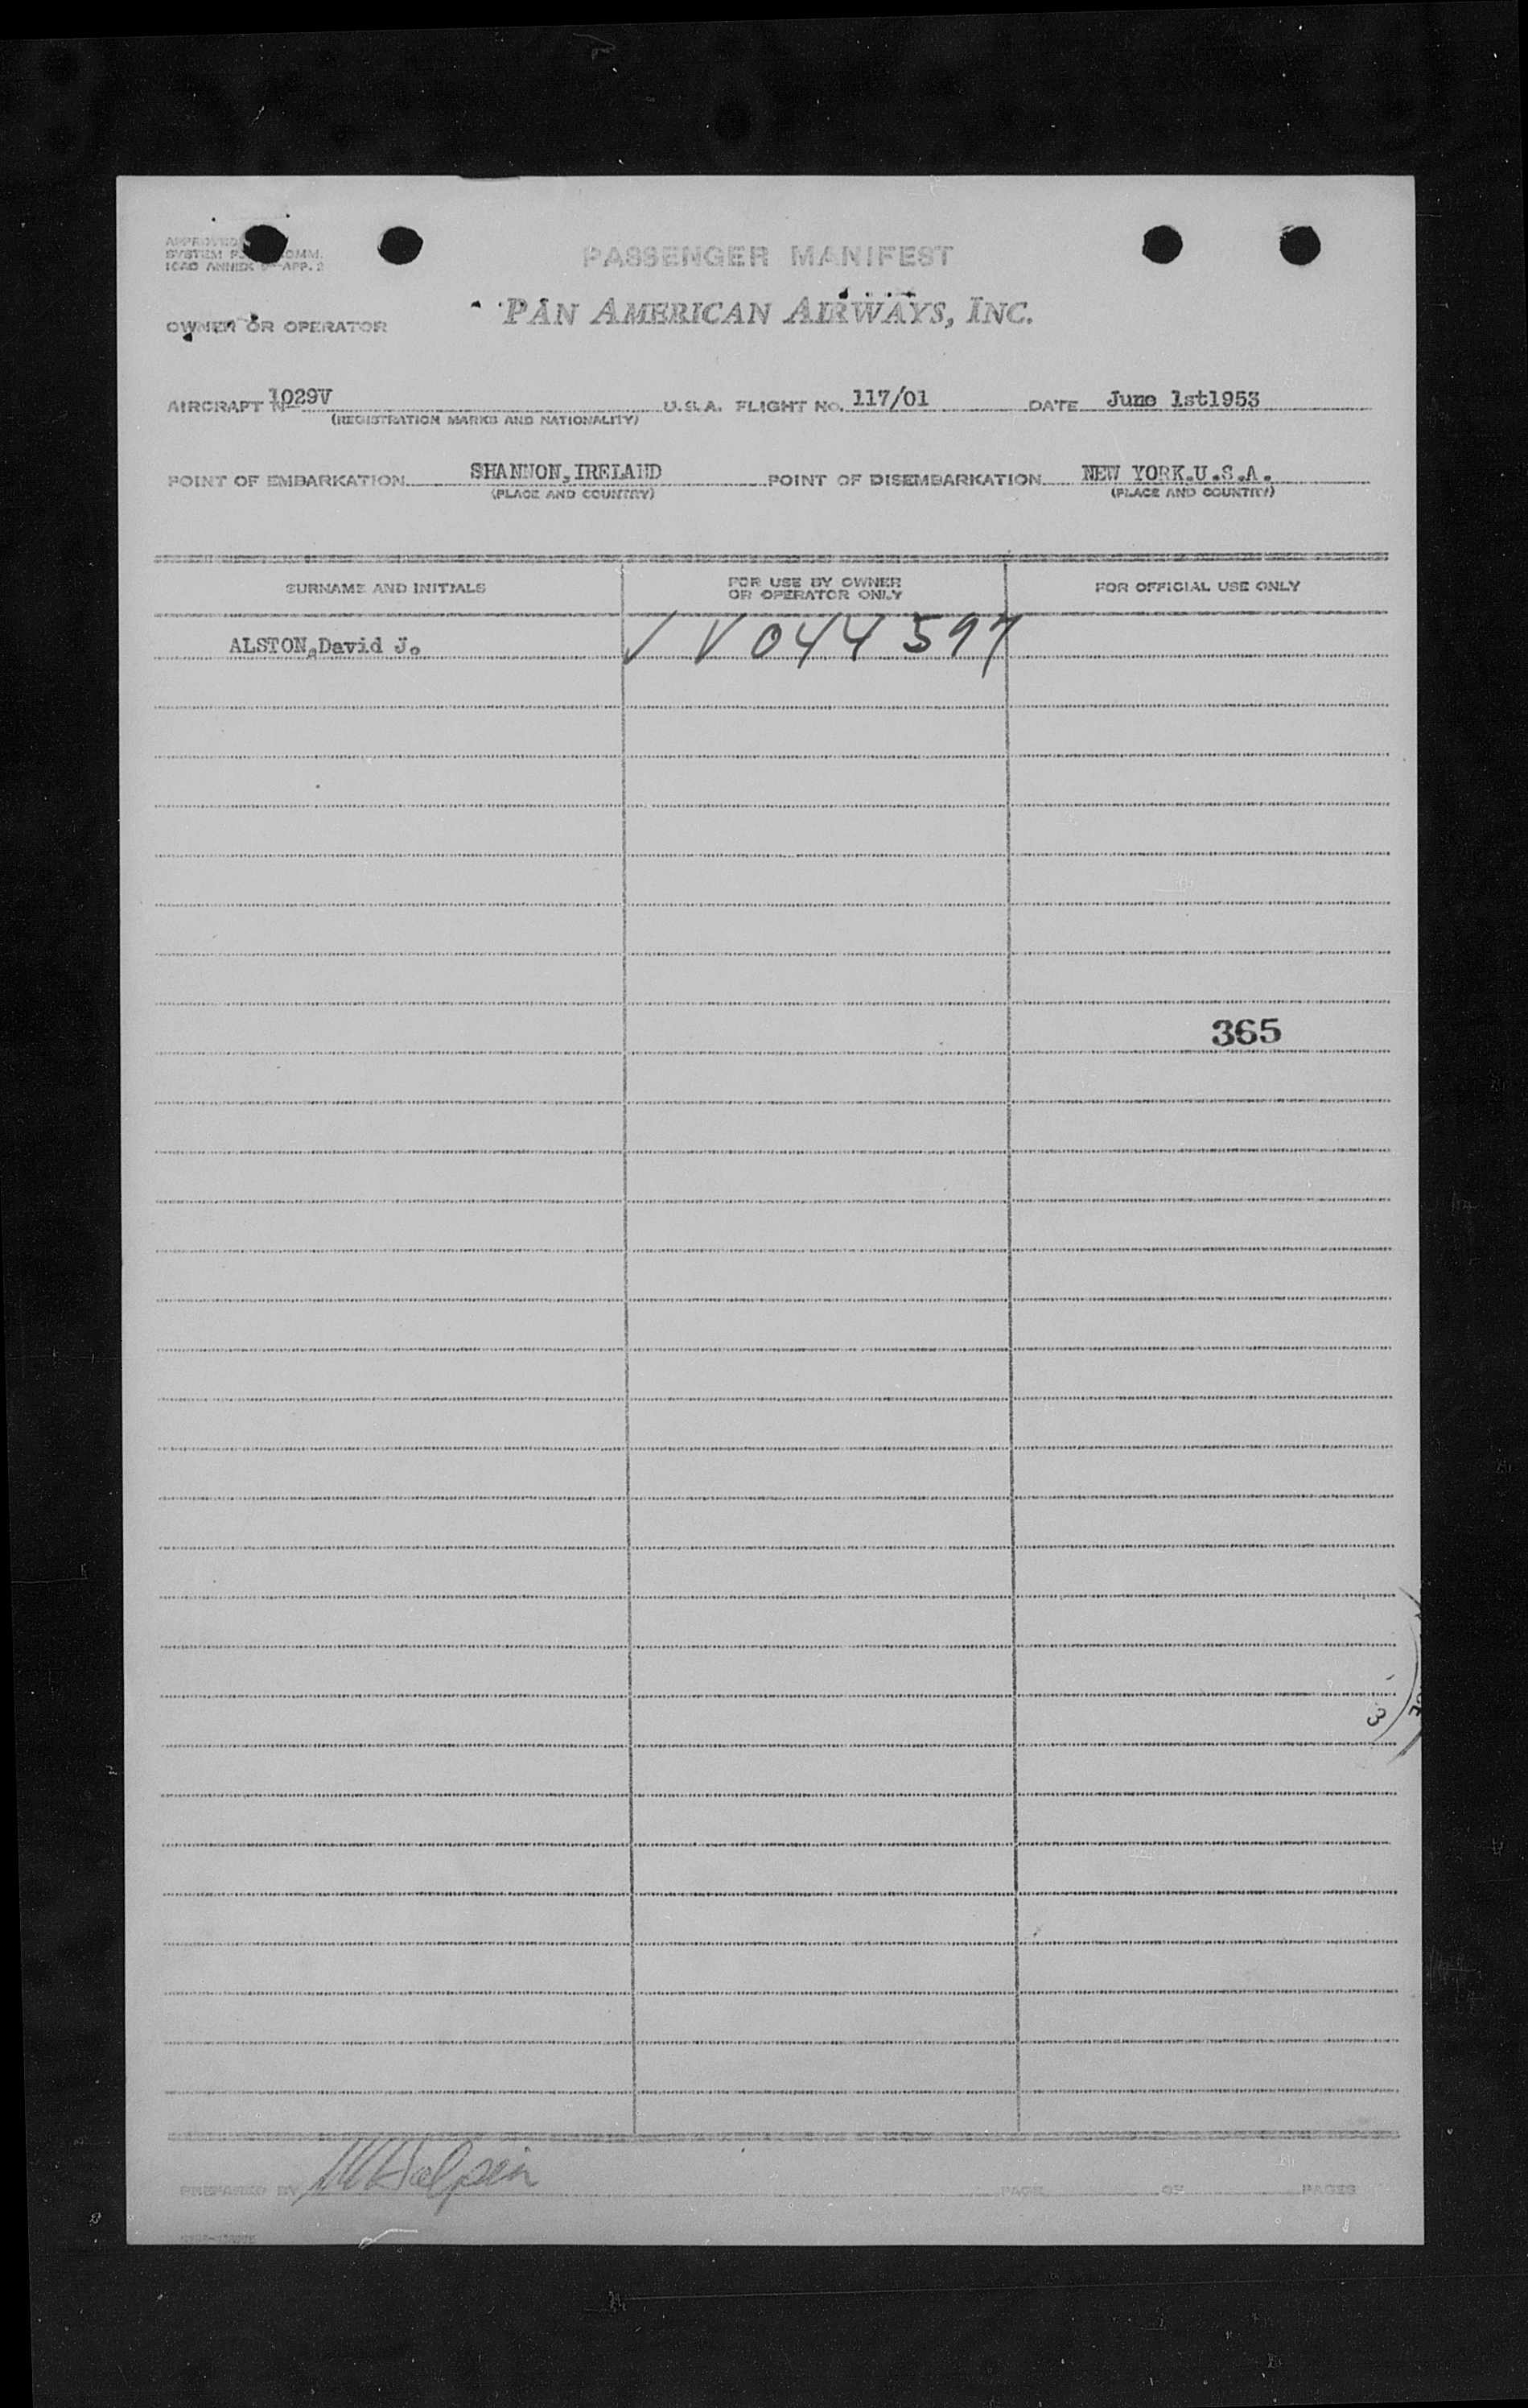 PASSENGER MANIFEST
APPROVED
SYSTEM COMM.
ICAO ANNEX 9-APP. 2
OWNER OR OPERATOR PAN AMERICAN AIRWAYS, INC.
AIRCRAFT N- 1029V U.S.A. FLIGHT NO. 117/01 DATE June 1st1953
(REGISTRATION MARKS AND NATIONALITY)
POINT OF EMBARKATION SHANNON,IRELAND POINT OF DISEMBARKATION NEW YORK.U.S.A.
(PLACE AND COUNTRY) (PLACE AND COUNTRY)
SURNAME AND INITIALS FOR USE BY OWNER OR OPERATOR ONLY FOR OFFICIAL USE ONLY
ALSTON,David J. ✓ V 044 597
365
3
PREPARED BY Halpin PAGE OF PAGES